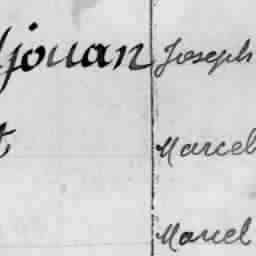 jouan Joseph
t Marcel
Marcel